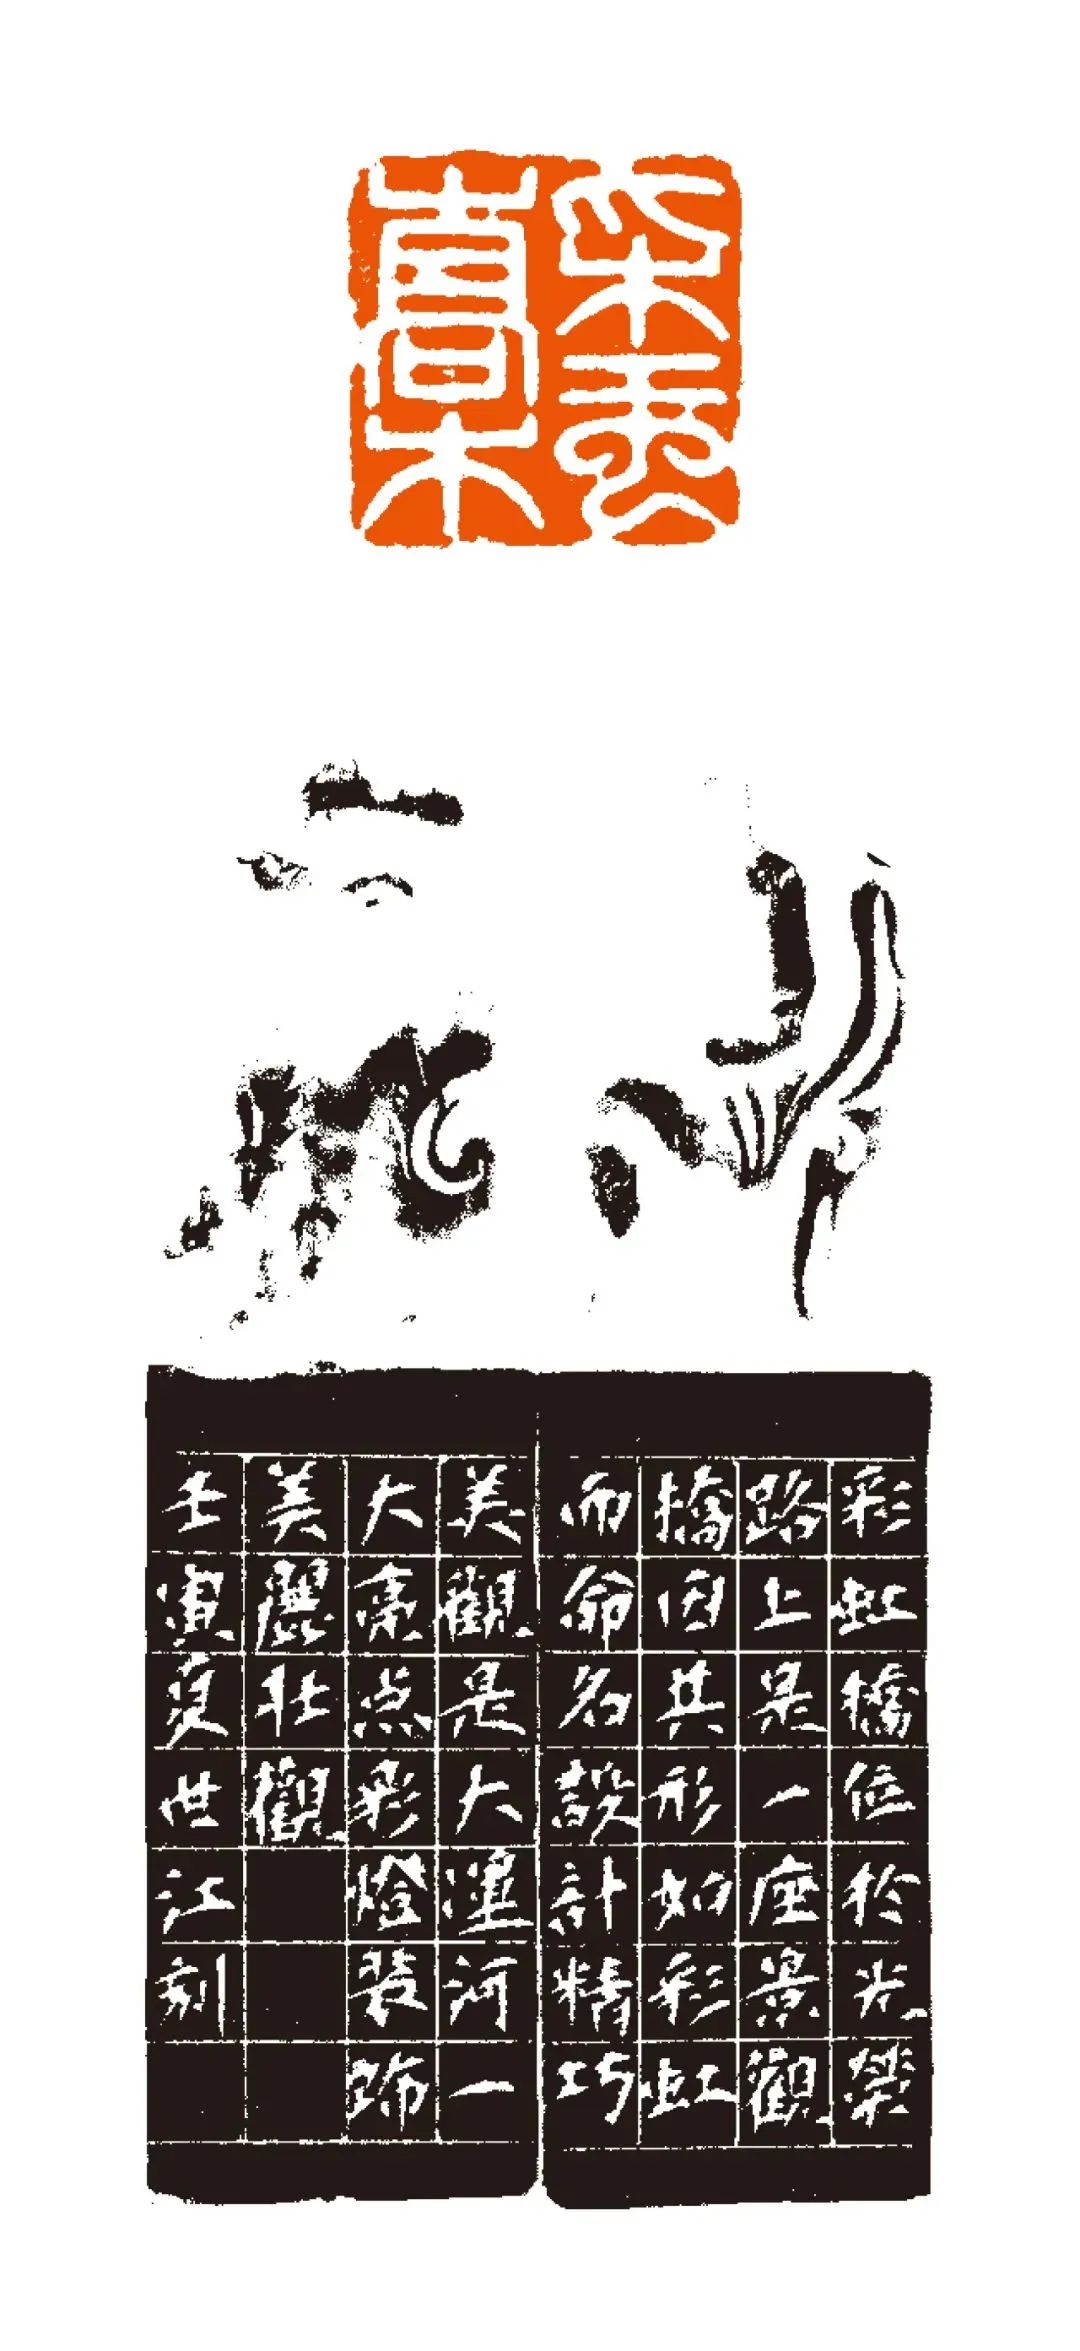 彩虹橋位於光榮
路上是一座景觀
橋因其形如彩虹
而命名設計精巧
美觀是大瀍河一
大亮点彩燈裝飾
美麗壯觀
壬寅夏世江刻